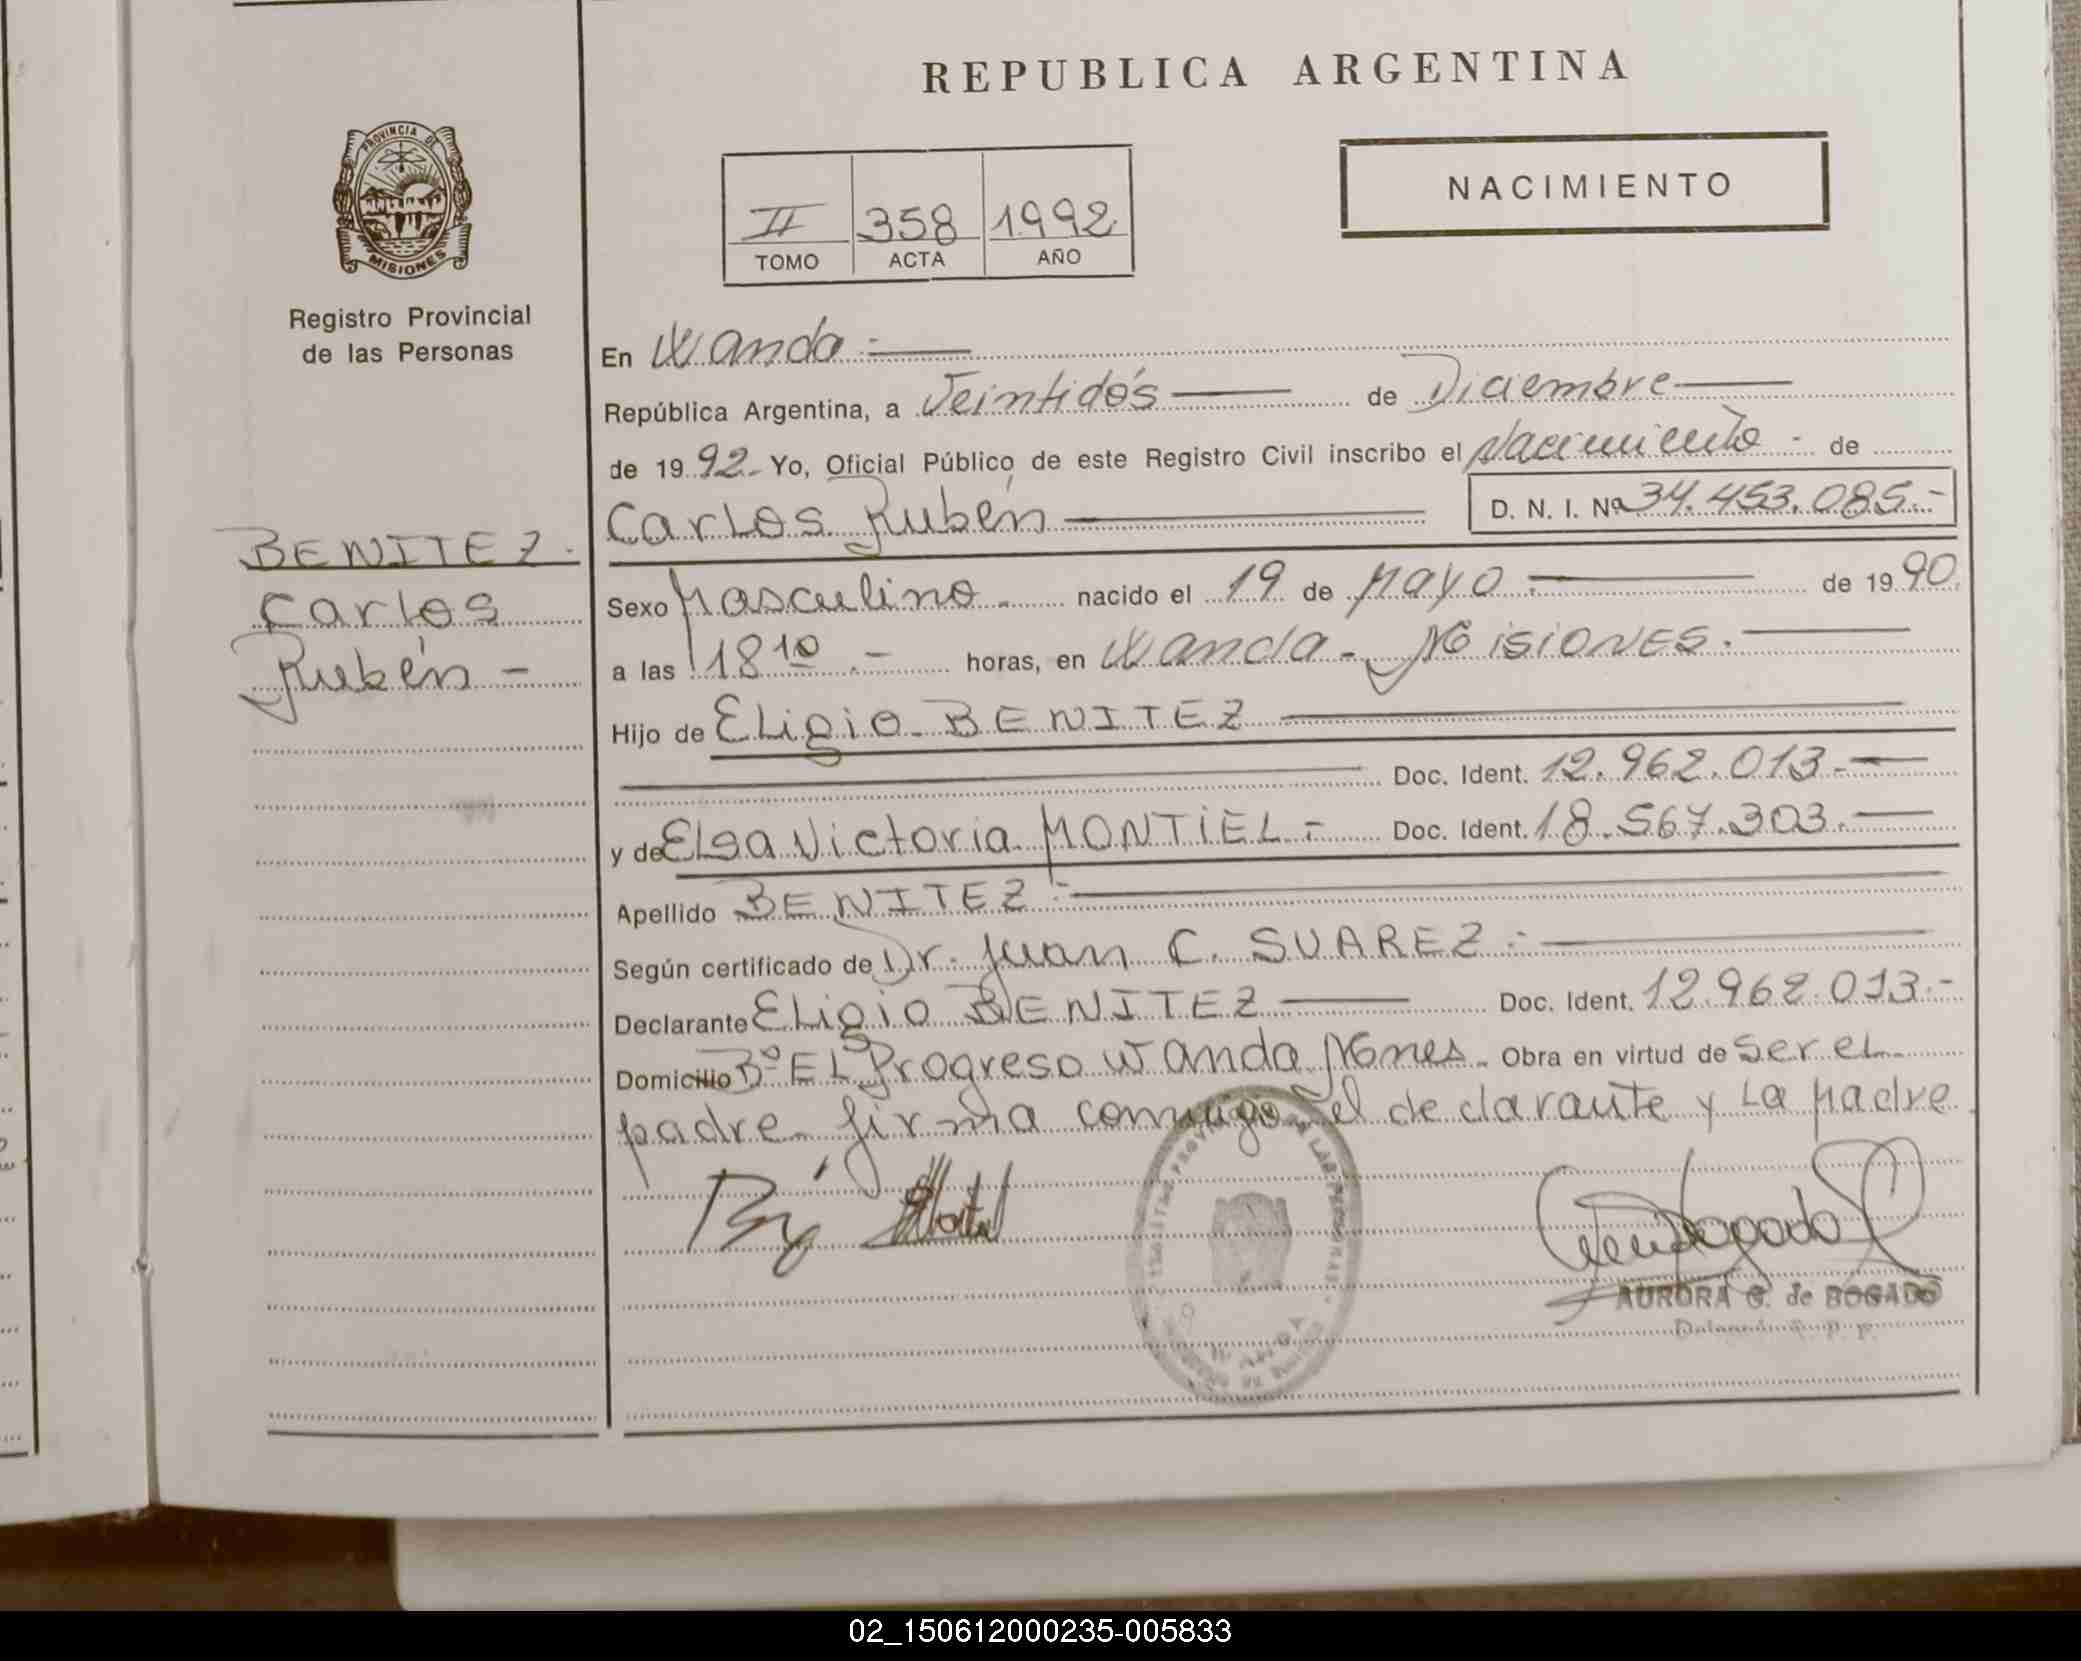 REPUBLICA ARGENTINA
PROVINCIA DE
MISIONES
Registro Provincial
de las Personas
BENITEZ.
Carlos
Rubén -
II 358 1992
TOMO ACTA AÑO
NACIMIENTO
En Wanda.-
República Argentina, a Veintidós de Diciembre
de 1992.- Yo, Oficial Público de este Registro Civil inscribo el Nacimiento - de
Carlos Rubén D. N. I. Nº 34.453.085.-
Sexo Masculino.- nacido el 19 de Mayo.- de 1990.
a las 18 10.- horas, en Wanda - Misiones.-
Hijo de Eligio BENITEZ
Doc. Ident. 12.962.013.-
y de Elsa Victoria MONTIEL.- Doc. Ident. 18.567.303.-
Apellido BENITEZ.-
Según certificado de Dr. Juan C. SUAREZ.-
Declarante Eligio BENITEZ Doc. Ident. 12.962.013.-
Domicilio Bº EL Progreso Wanda Mnes. Obra en virtud de ser el
padre. firma conmigo el declarante y La Madre.
AURORA G. de BOGADO
02_150612000235-005833